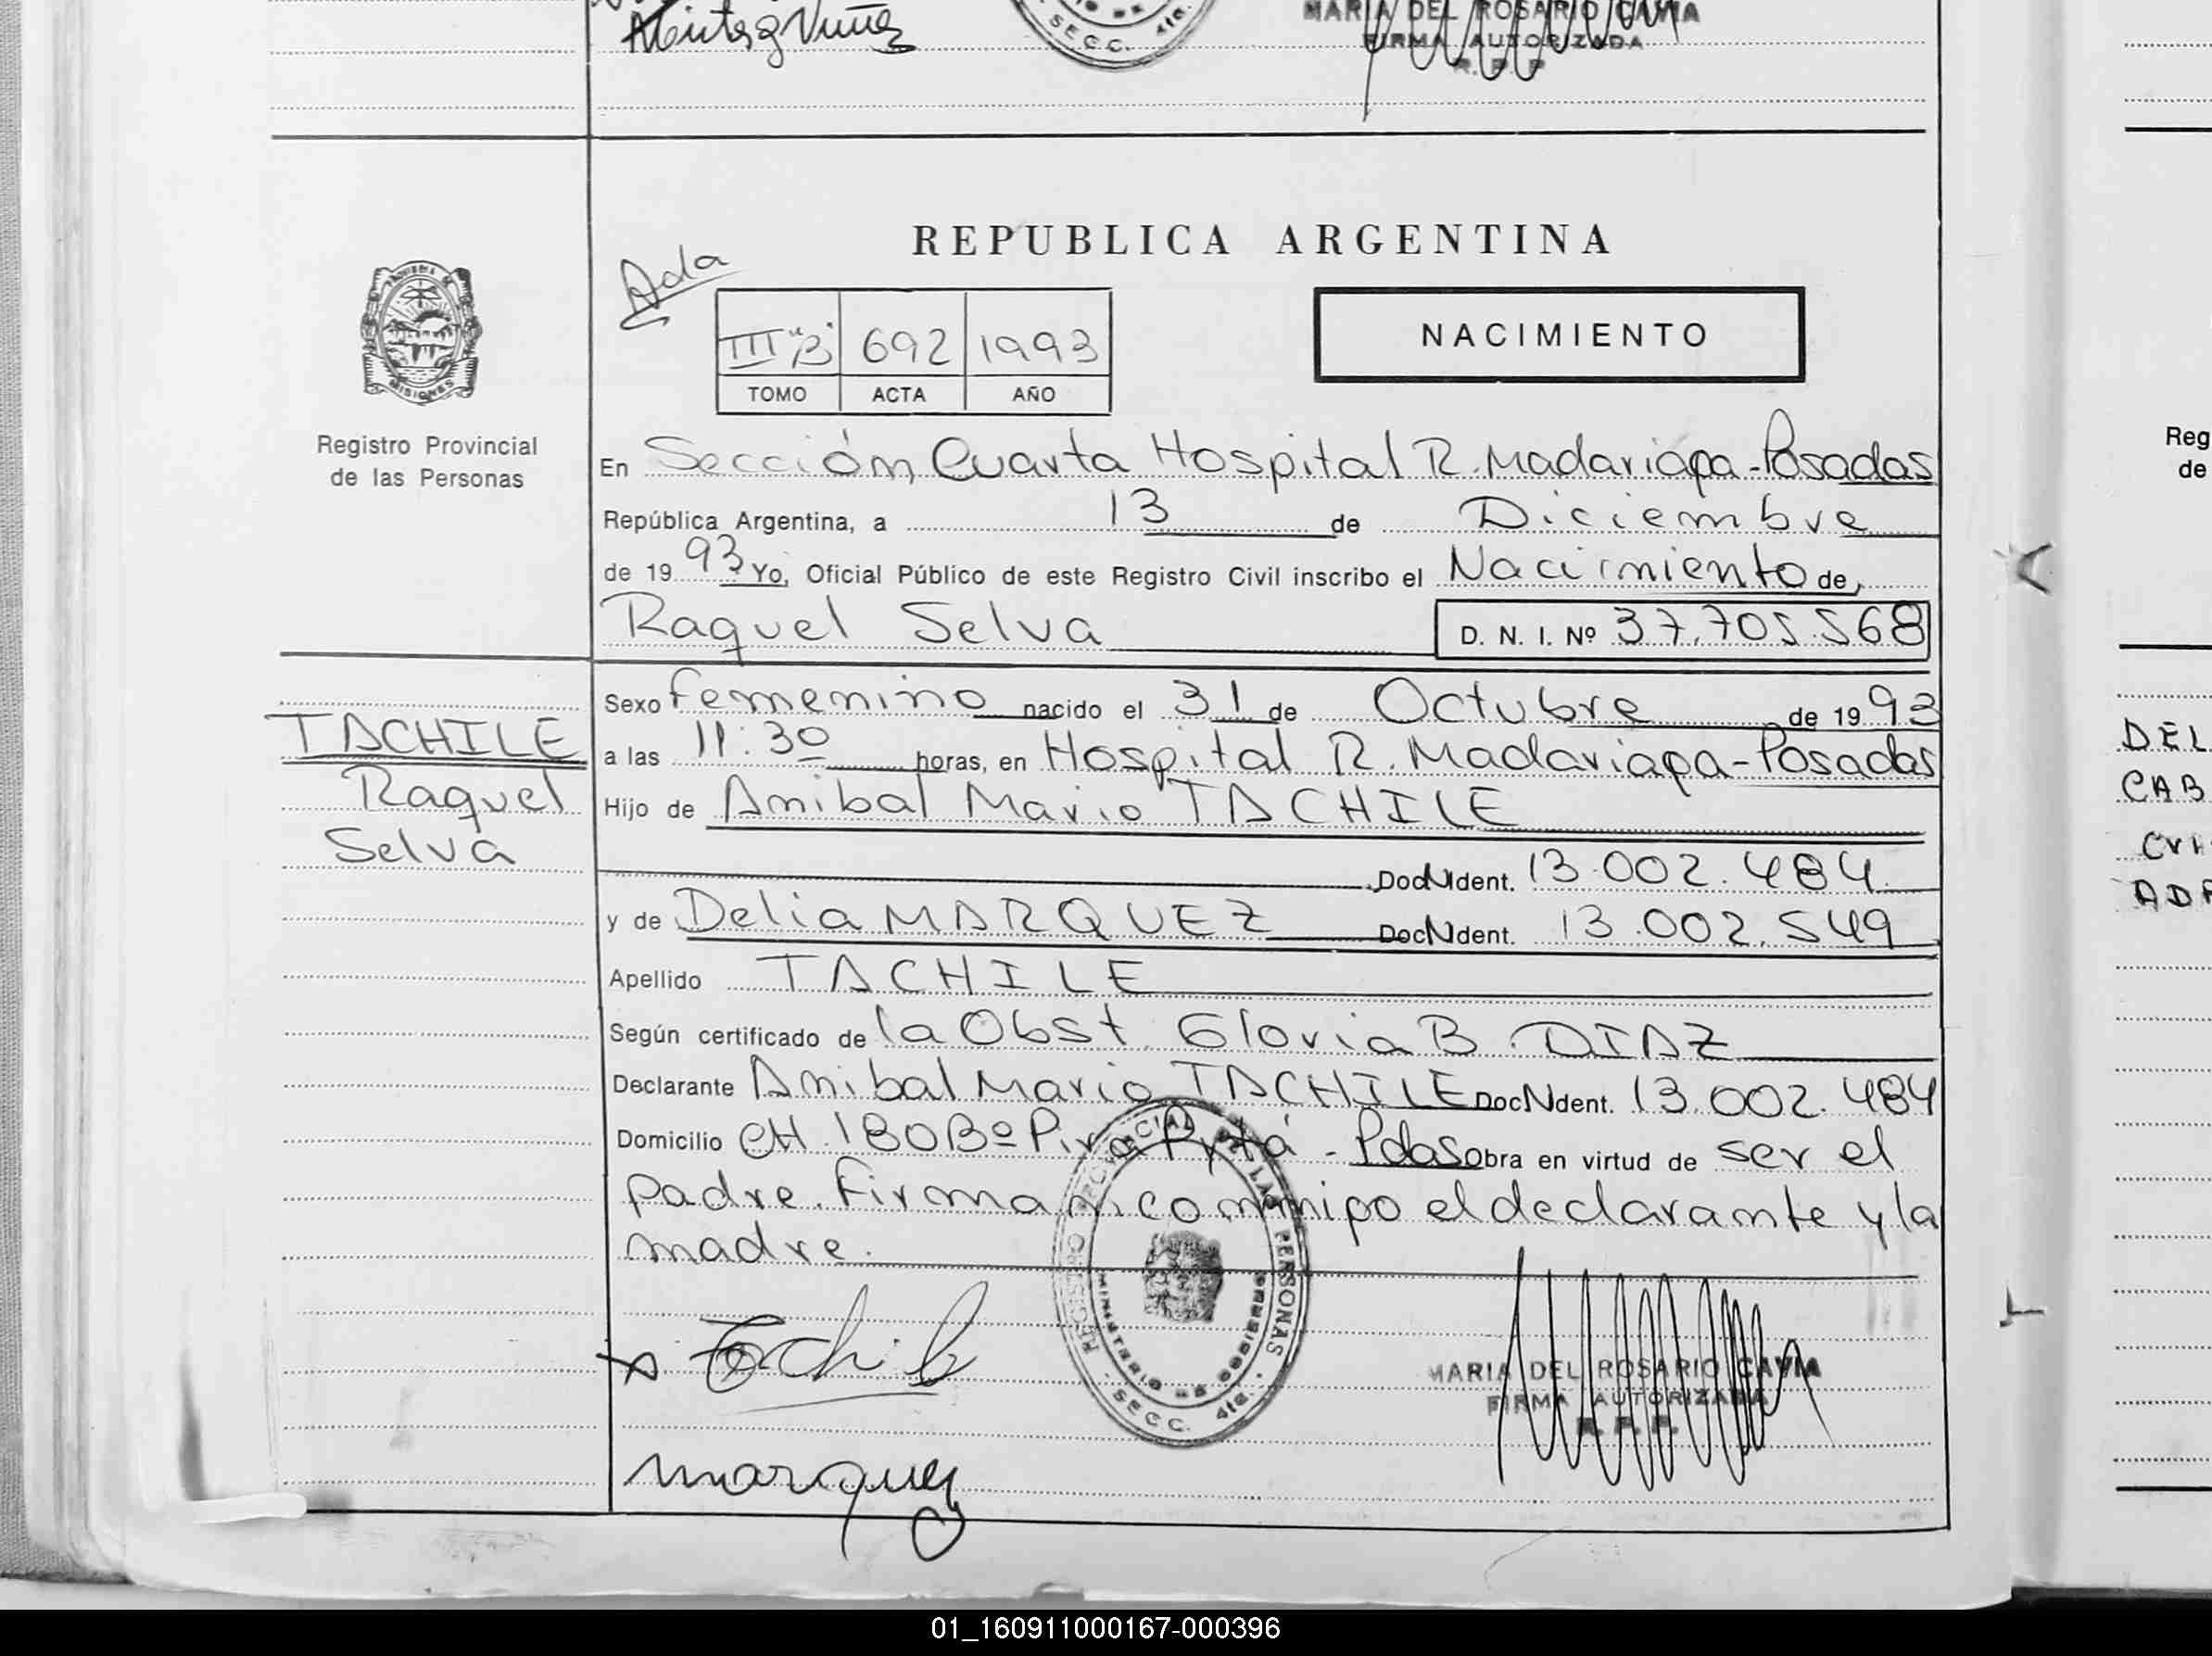 Montes Nuñez
SECC. 4ta.
MARIA DEL ROSARIO GAVIA
FIRMA AUTORIZADA
R. P. P.
REPUBLICA ARGENTINA
Ada
III "B" 692 1993
TOMO ACTA AÑO
NACIMIENTO
MISIONES
Registro Provincial
de las Personas
En Sección Cuarta Hospital R. Madariaga - Posadas
República Argentina, a 13 de Diciembre
de 19 93 Yo, Oficial Público de este Registro Civil inscribo el Nacimiento de
Raquel Selva D. N. I. Nº 37.705.568
TACHILE
Raquel
Selva
Sexo Femenino nacido el 31 de Octubre de 19 93
a las 11:30 horas, en Hospital R. Madariaga - Posadas
Hijo de Anibal Mario TACHILE
Doc N Ident. 13.002.484
y de Delia MARQUEZ Doc N Ident. 13.002.549
Apellido TACHILE
Según certificado de la Obst. Gloria B DIAZ
Declarante Anibal Mario TACHILE Doc N Ident. 13.002.484
Domicilio CH.180 Bº Pira Pytá - Pdas Obra en virtud de ser el
padre. Firman conmigo el declarante y la
madre.
REGISTRO PROVINCIAL DE LAS PERSONAS
MINISTERIO DE GOBIERNO
SECC. 4ta.
Tachile
MARIA DEL ROSARIO GAVIA
FIRMA AUTORIZADA
R. P. P.
Marquez
Reg
de
DEL
CAB
ADA
01_160911000167-000396